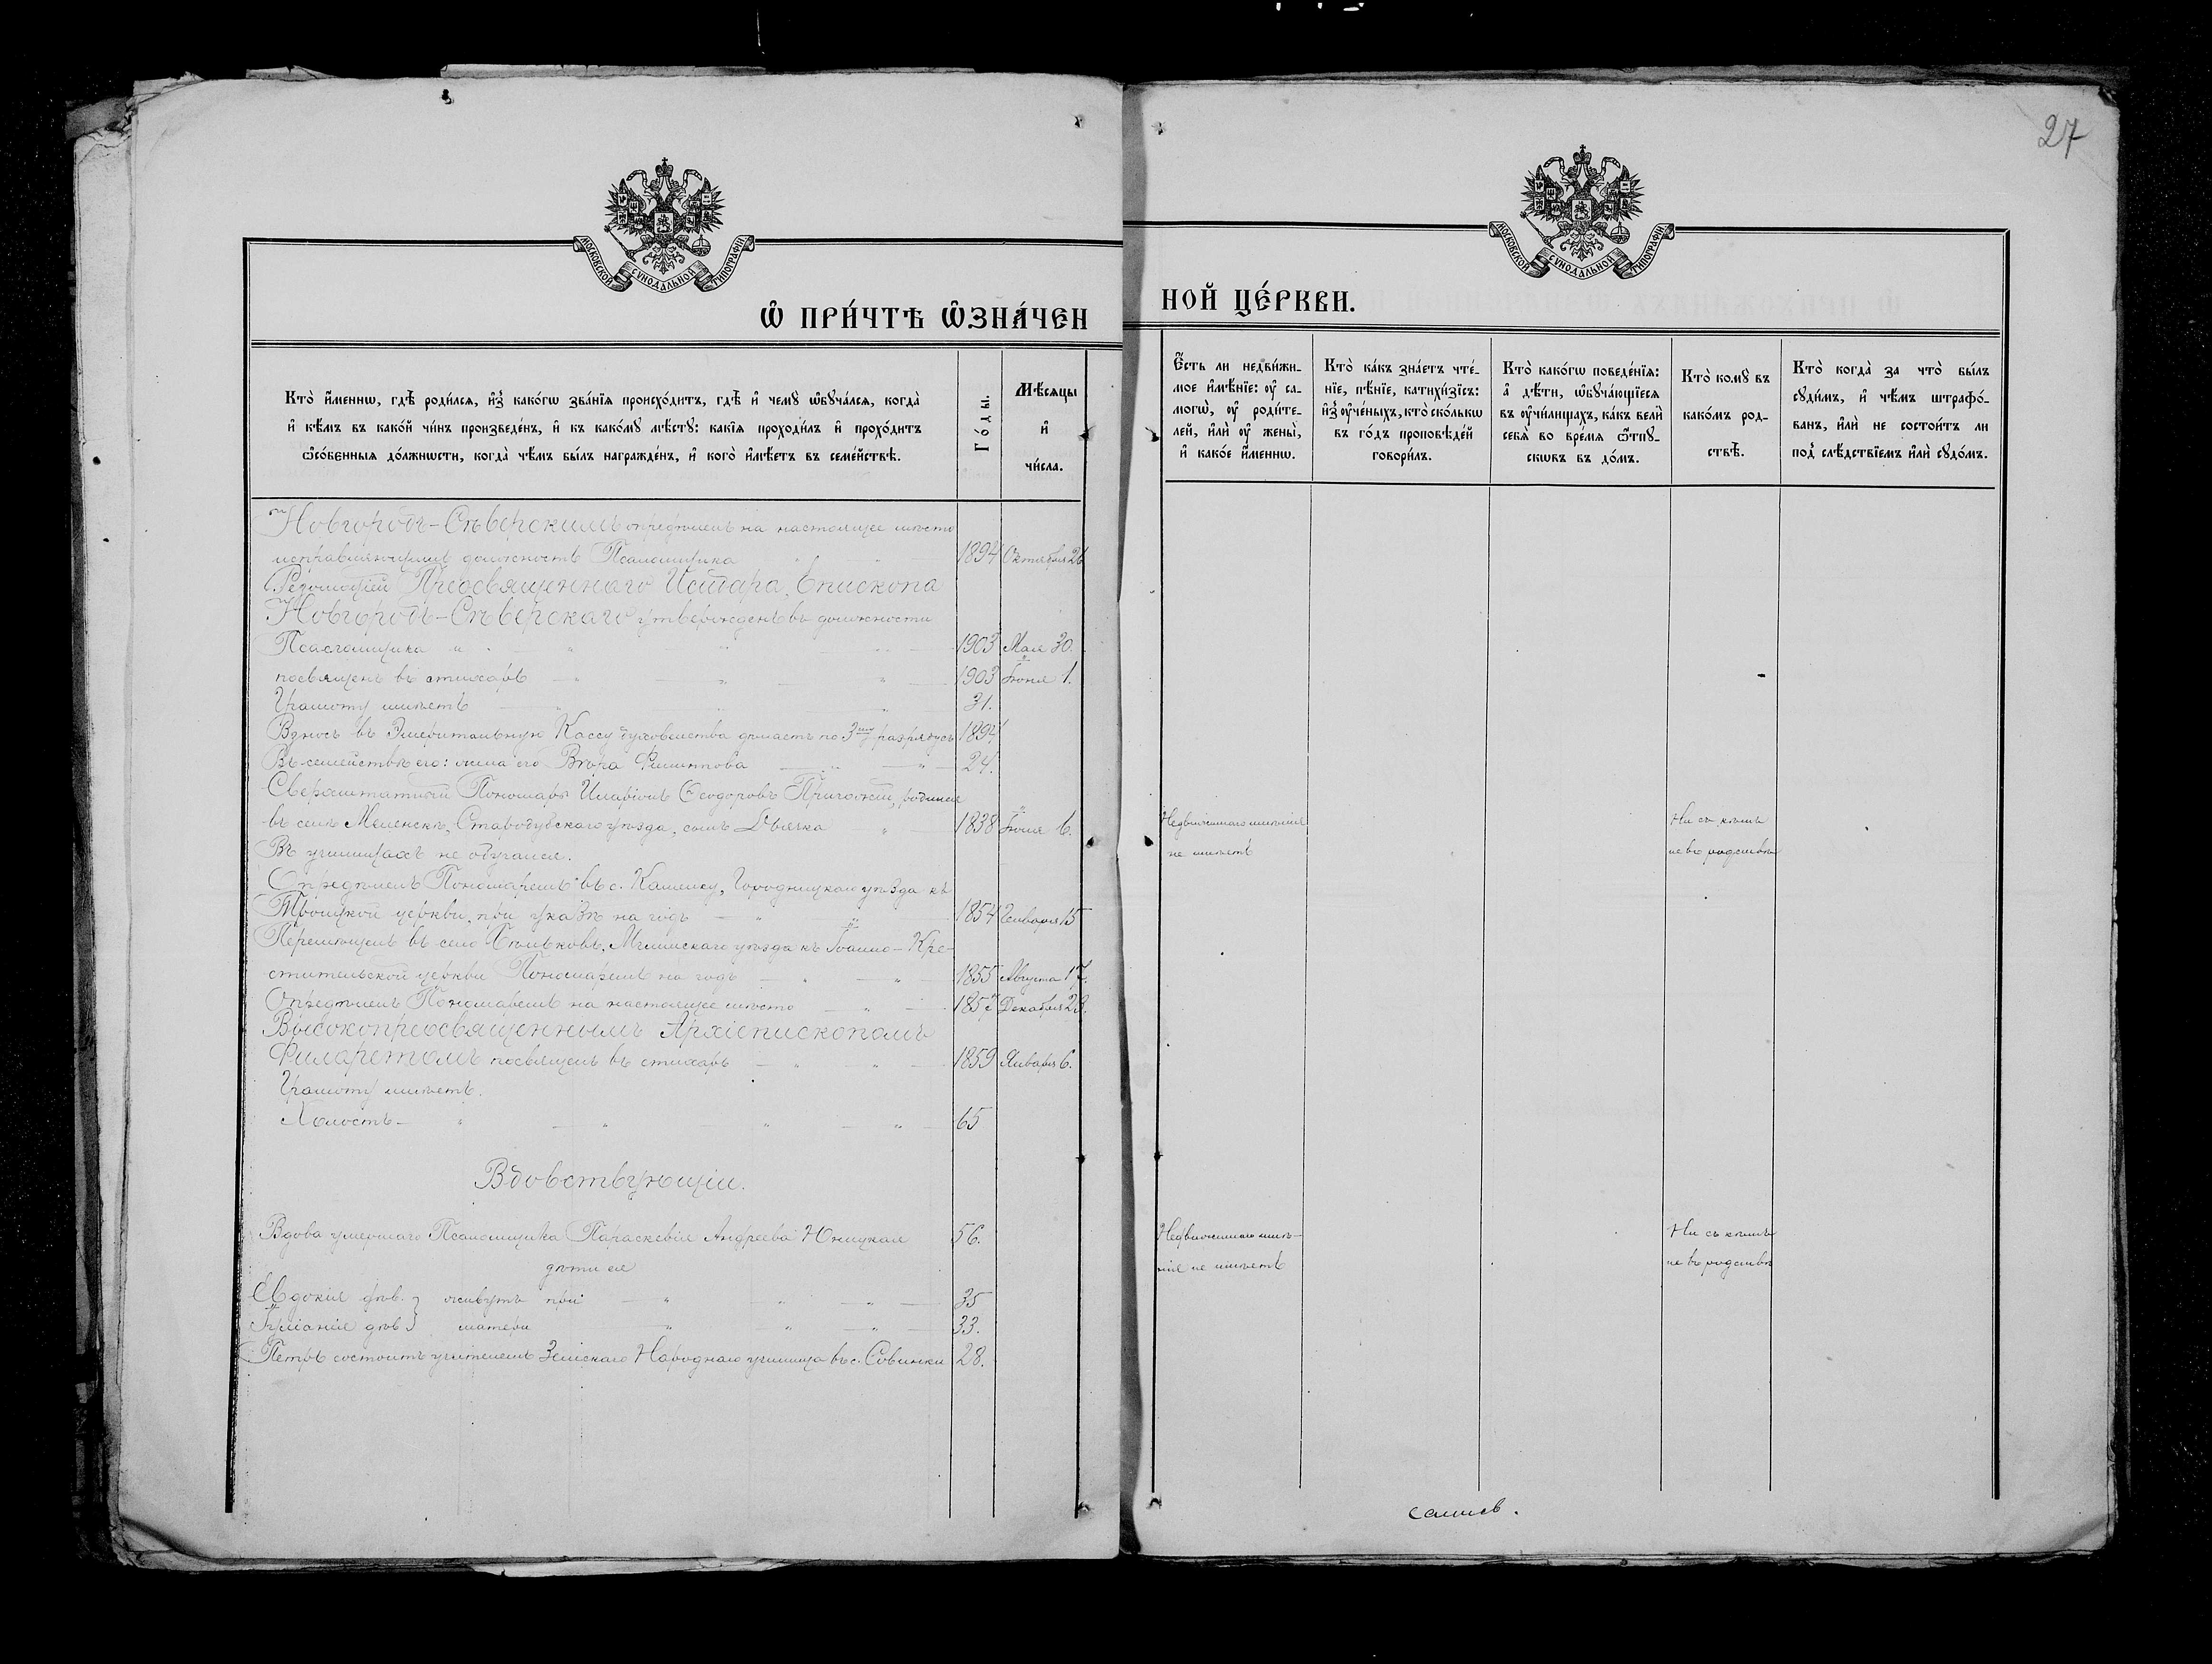 27
МОСКОВСКОЙ СѴНОДАЛЬНОЙ ТИПОГРАФІИ
МОСКОВСКОЙ СѴНОДАЛЬНОЙ ТИПОГРАФІИ
Ѡ ПРИ́ЧТѢ ѠЗНА́ЧЕН
НОЙ ЦЕ́РКВИ.
Кто̀ и҆́менно, гдѣ̀ роди́лсѧ, и҆з̾ како́гѡ зва́нїѧ происхо́дитъ, гдѣ̀ и҆ чемꙋ̀ ѡ҆бꙋча́лсѧ, когда̀
и҆ кѣ́мъ въ како́й чи́нъ произведе́нъ, и҆ къ како́мꙋ мѣ́стꙋ: какі̑ѧ проходи́лъ и҆ прохо́дитъ
ѻ҆со́бенныѧ до́лжнѡсти, когда̀ чѣ́мъ бы́лъ награжде́нъ, и҆ кого̀ и҆мѣ́етъ въ семе́йствѣ.
Го́ды.
Мѣ́сѧцы
и҆
чи́сла.
Є҆́сть ли недви́жи-
мое и҆мѣ́нїе: ᲂу҆ са-
могѡ̀, ᲂу҆ роди́те-
лей, и҆лѝ ᲂу҆ жены̀,
и҆ како́е и҆́меннѡ.
Кто̀ ка́къ зна́етъ чте́-
нїе, пѣ́нїе, катихи́зїсъ:
и҆з̾ ᲂу҆че́ныхъ, кто̀ ско́лькѡ
въ го́дъ проповѣ́дей
говори́лъ.
Кто̀ како́гѡ поведе́нїѧ:
а҆ дѣ́ти, ѡ҆бꙋча́ющїесѧ
въ ᲂу҆чи́лищахъ, ка́къ велѝ
себѧ̀ во вре́мѧ ѿпꙋ-
скѡвъ въ до́мъ.
Кто̀ комꙋ̀ въ
како́мъ род-
ствѣ̀.
Кто̀ когда̀ за что̀ бы́лъ
сꙋди́мъ, и҆ чѣ́мъ штрафо́-
ванъ, и҆лѝ не состои́тъ ли
под̾ слѣ́дствїемъ и҆лѝ сꙋдо́мъ.
Новгородъ-Сѣверскимъ опредѣленъ на настоящее мѣсто
исправляющимъ должность Псаломщика 1894 Октября 26
Резолюціей Преосвященнаго Епископа
Новгородъ-Сѣверскаго утвержденъ въ должности
Псаломщика 1903 Мая 30.
посвященъ въ стихарь 1903 Іюня 1.
Грамоту имѣетъ 31.
Взносъ въ Эмеритальную Кассу духовенства дѣлаетъ по 3му разряду съ 1894
Въ семействѣ его: жена его Вѣра 24.
Сверхштатный Пономарь Иларіонъ Ѳеодоровъ родился
въ селѣ Меленскѣ, Стародубскаго уѣзда, сынъ Дьячка 1838 Іюня 6.
Недвижимаго имѣнія
не имѣетъ
Ни съ кѣмъ
не въ родствѣ
Въ училищахъ не обучался.
Опредѣленъ Пономаремъ въ с. Городницкаго уѣзда къ
Троицкой церкви, при указѣ на годъ 1854 Января 15
Перемѣщенъ въ село Мглинскаго уѣзда къ Іоанно-Кре-
стительской церкви Пономаремъ на годъ 1855 Августа 17.
Опредѣленъ Пономаремъ на настоящее мѣсто 1857 Декабря 23.
Высокопреосвященнымъ Архіепископомъ
Филаретомъ посвященъ въ стихарь 1859 Января 6.
Грамоту имѣетъ.
Холостъ 65
Вдовствующіи.
Вдова умершаго Псаломщика Параскевія Андреева Юницкая 56.
Недвижимаго имѣ-
нія не имѣетъ
Ни съ кѣмъ
не въ родствѣ
дѣти ея
Евдокія дѣв. } живутъ при 35
Іуліанія дѣв. } матери 33.
Петръ состоитъ учителемъ Земскаго Народнаго училища въ с. Савинки 28.